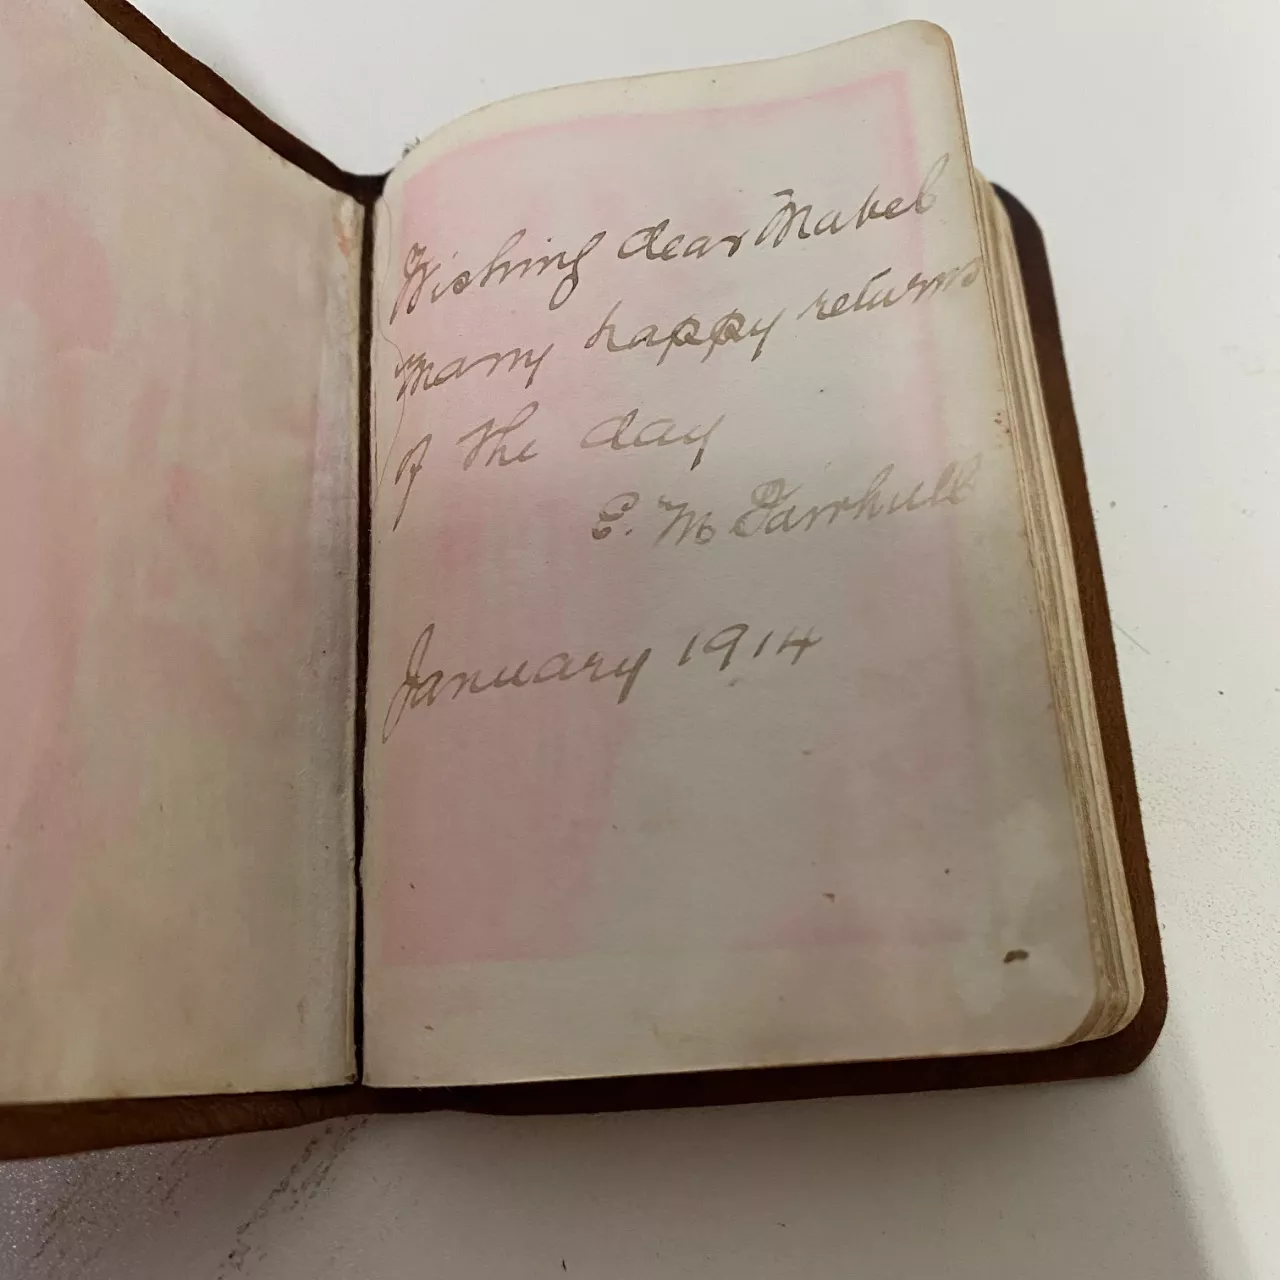 Wishing dear Mabel
many happy returns
of the day
E. M
January 1914